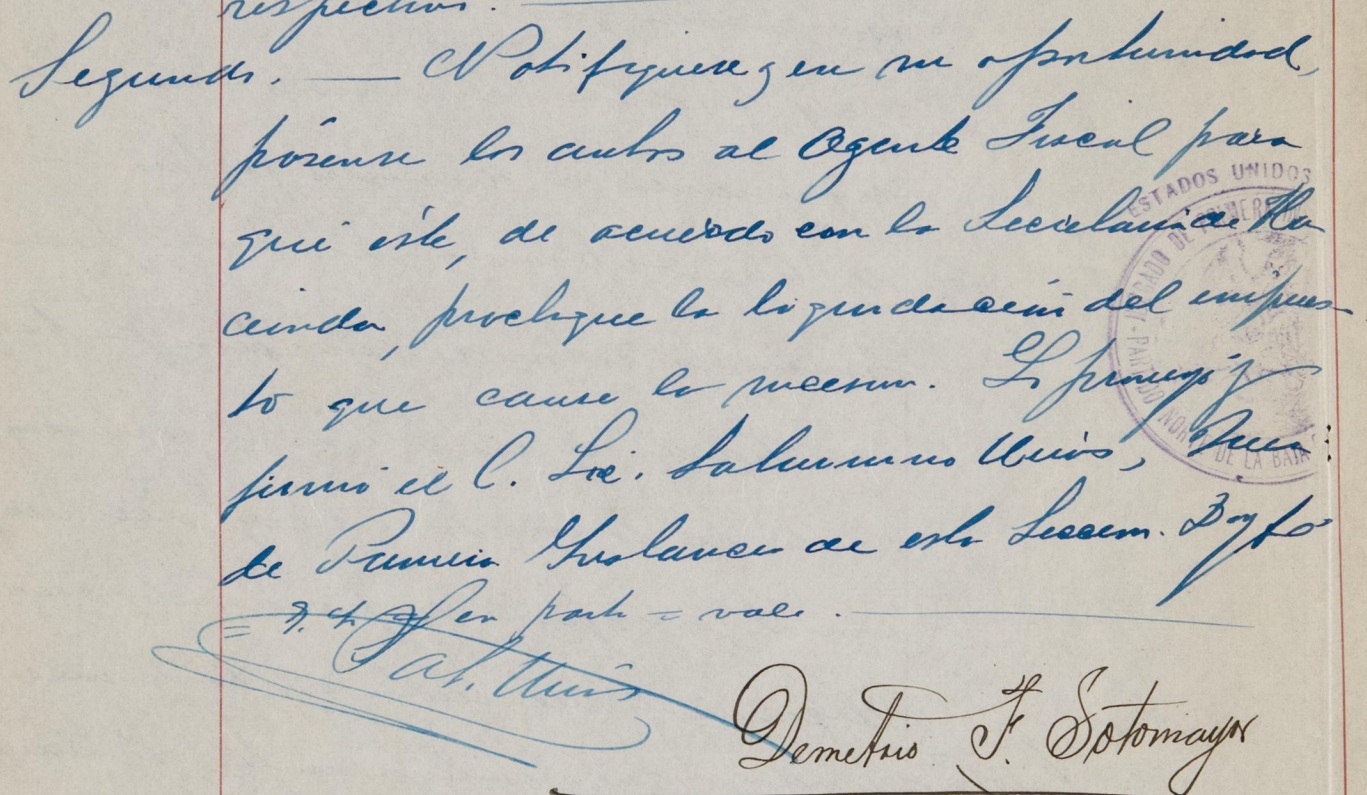 respectivos. ——
Segundo. — Notifíquese y en su oportunidad,
pásense los autos al Agente Fiscal para
que éste, de acuerdo con la Secretaría de Ha
cienda, practique la liquidación del impues-
to que cause la sucesión. Lo proveyó y
firmó el C. Lic. Saturnino Urías, Juez
de Primera Instancia de esta Sección. Doy fé
en parte = vale. ——
Sat. Urías
Demetrio F. Sotomayor
ESTADOS UNIDOS
JUZGADO DE PRIMERA
PARTIDO NORTE DE LA BAJA